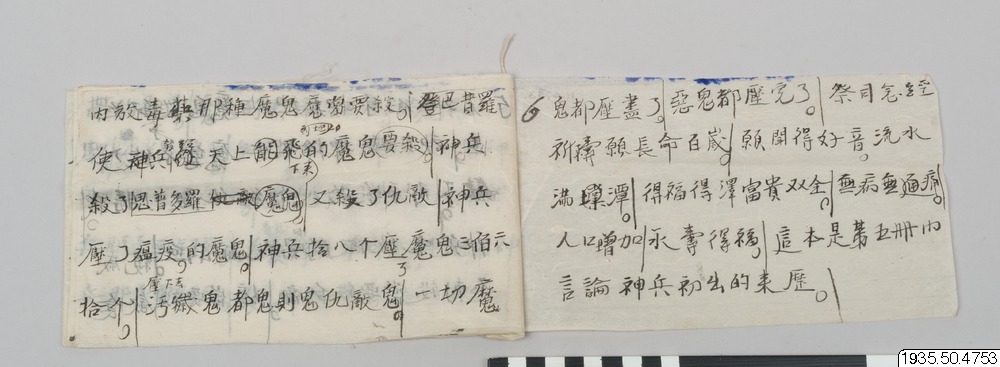 内放毒 那種魔鬼應當要殺。登巴普羅
使神兵 天上能飛的魔鬼要殺。神兵
下來
殺了思普多羅 魔鬼。又殺了仇敵 神兵
壓了瘟疫的魔鬼。神兵拾八个壓了魔鬼三佰六
拾个。壓下去 污穢鬼都鬼則鬼仇敵鬼。一切魔
6
鬼都壓盡了。惡鬼都壓完了。祭司念經
祈禱願長命百歲。願開得好音流水
滿 潭。得福得澤富貴双全。無病無通痛。
人口增加。永壽得福。這本是第五冊内
言論神兵初出的来歷。
1935.50.4753